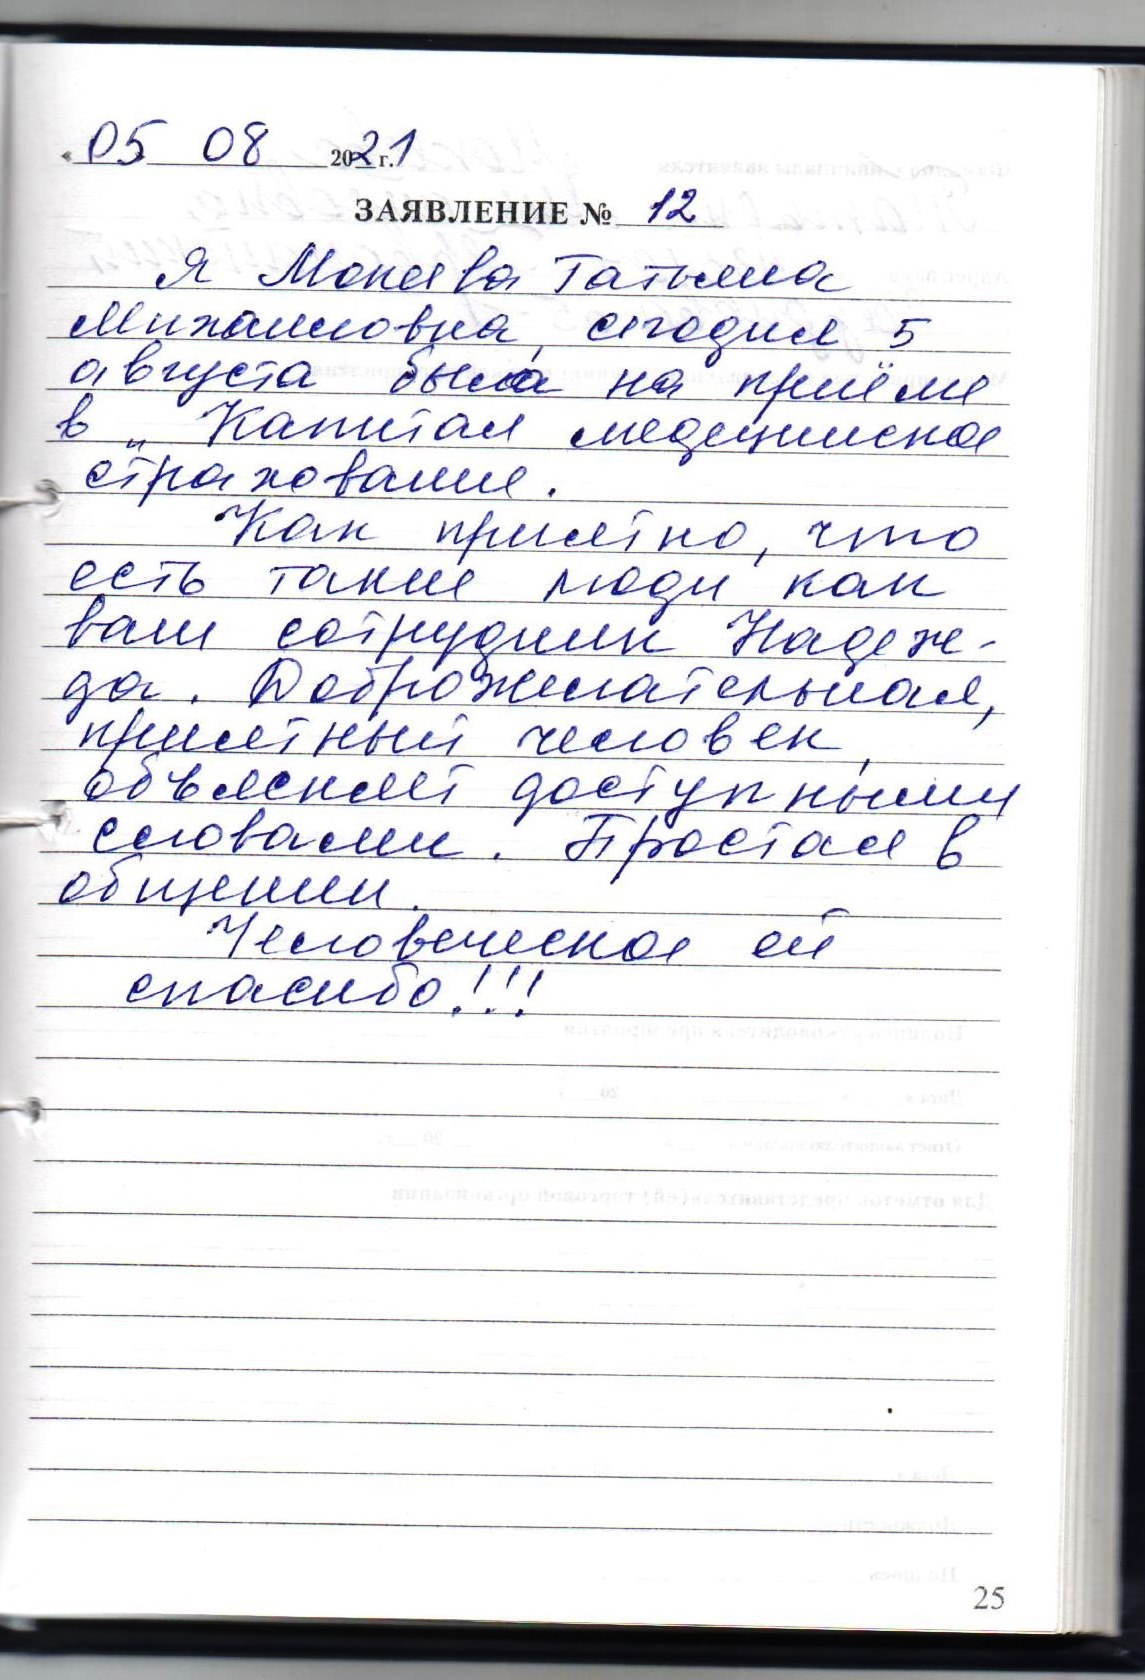 « 05 08 2021 г.
ЗАЯВЛЕНИЕ № 12
Я Мокеева Татьяна
Михайловна, сегодня 5
августа была на приёме
в „ Капитал медицинское
страхование.
Как приятно, что
есть такие люди как
ваш сотрудник Надеж-
да. Доброжелательная,
приятный человек,
объясняет доступными
словами. Простая в
общении.
Человеческое ей
спасибо!!!
25